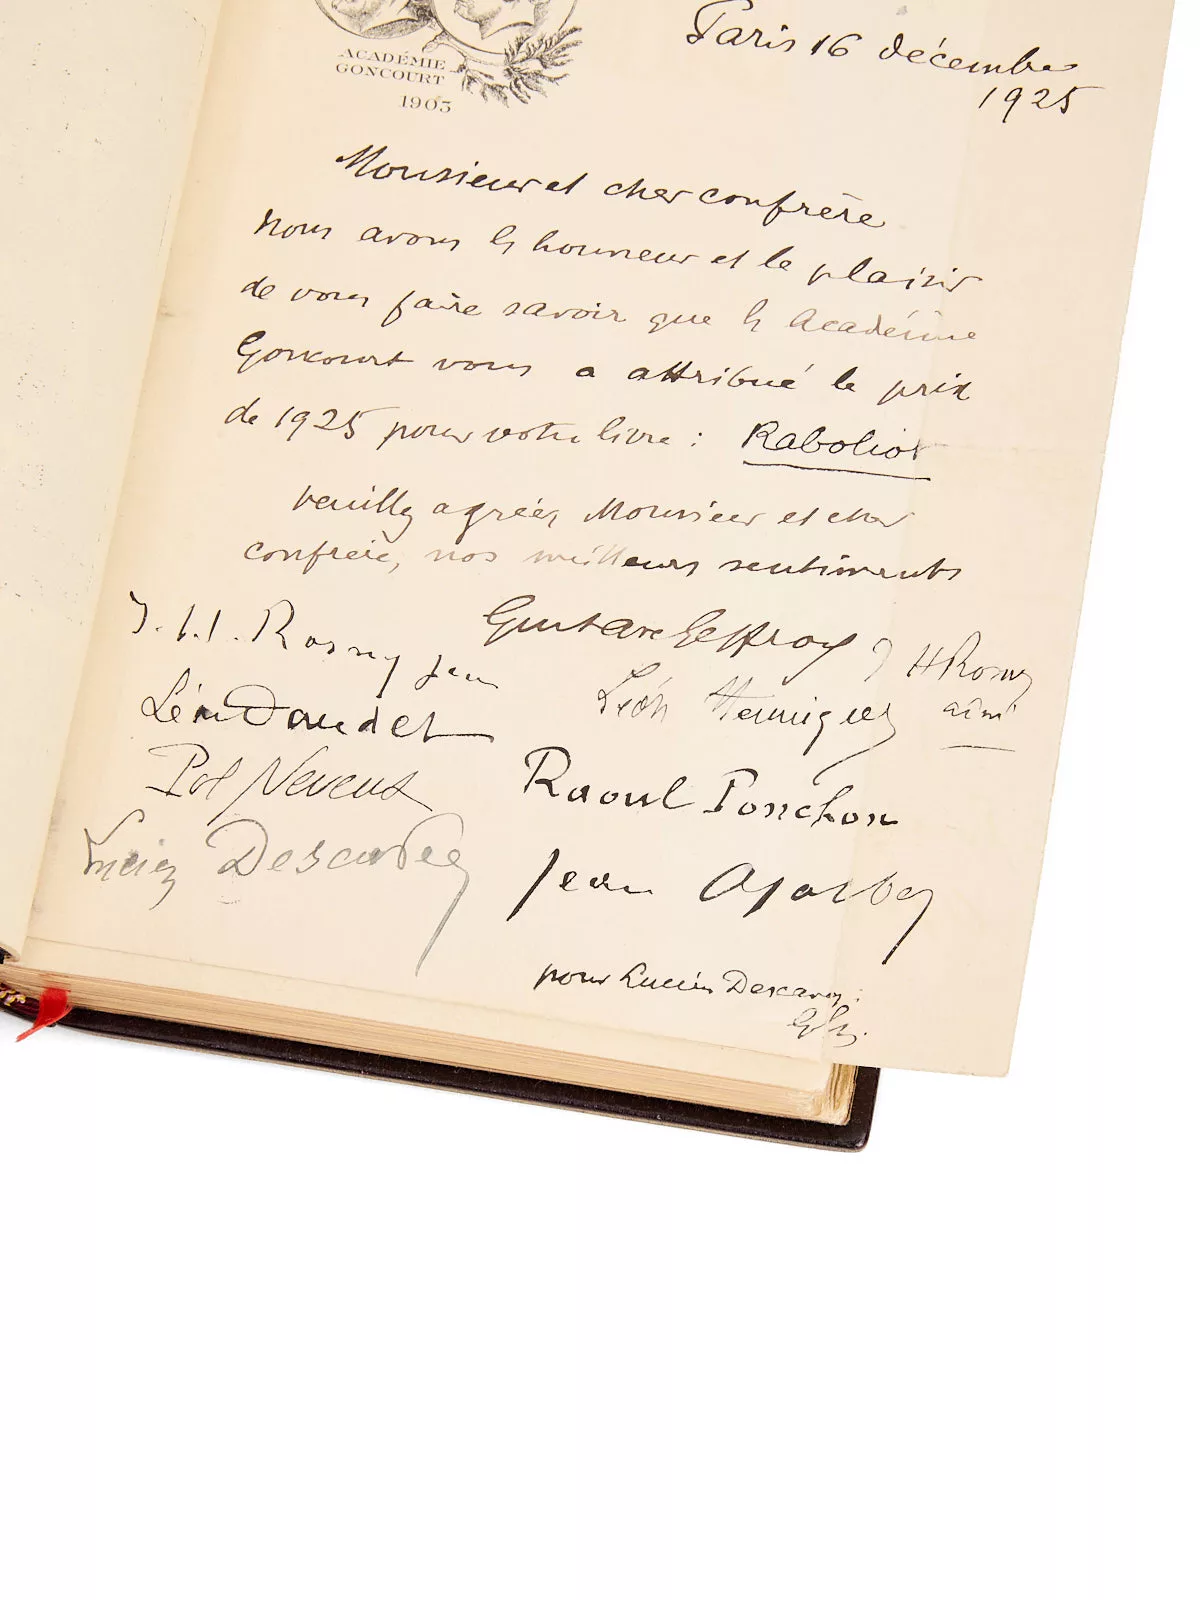 ACADÉMIE
GONCOURT
1903
Paris 16 décembre
1925
Monsieur et cher confrère
Nous avons l'honneur et le plaisir
de vous faire savoir que l'Académie
Goncourt vous a attribué le prix
de 1925 pour votre livre : Raboliot
Veuillez agréer, Monsieur et cher
confrère, nos meilleurs sentiments
Gustave Geffroy
J. H Rosny
aîné
Rosny jeune
Léon Daudet
Léon Hennique
Pol Neveux
Raoul Ponchon
Lucien Descaves
Jean Ajalbert
pour Lucien Descaves :